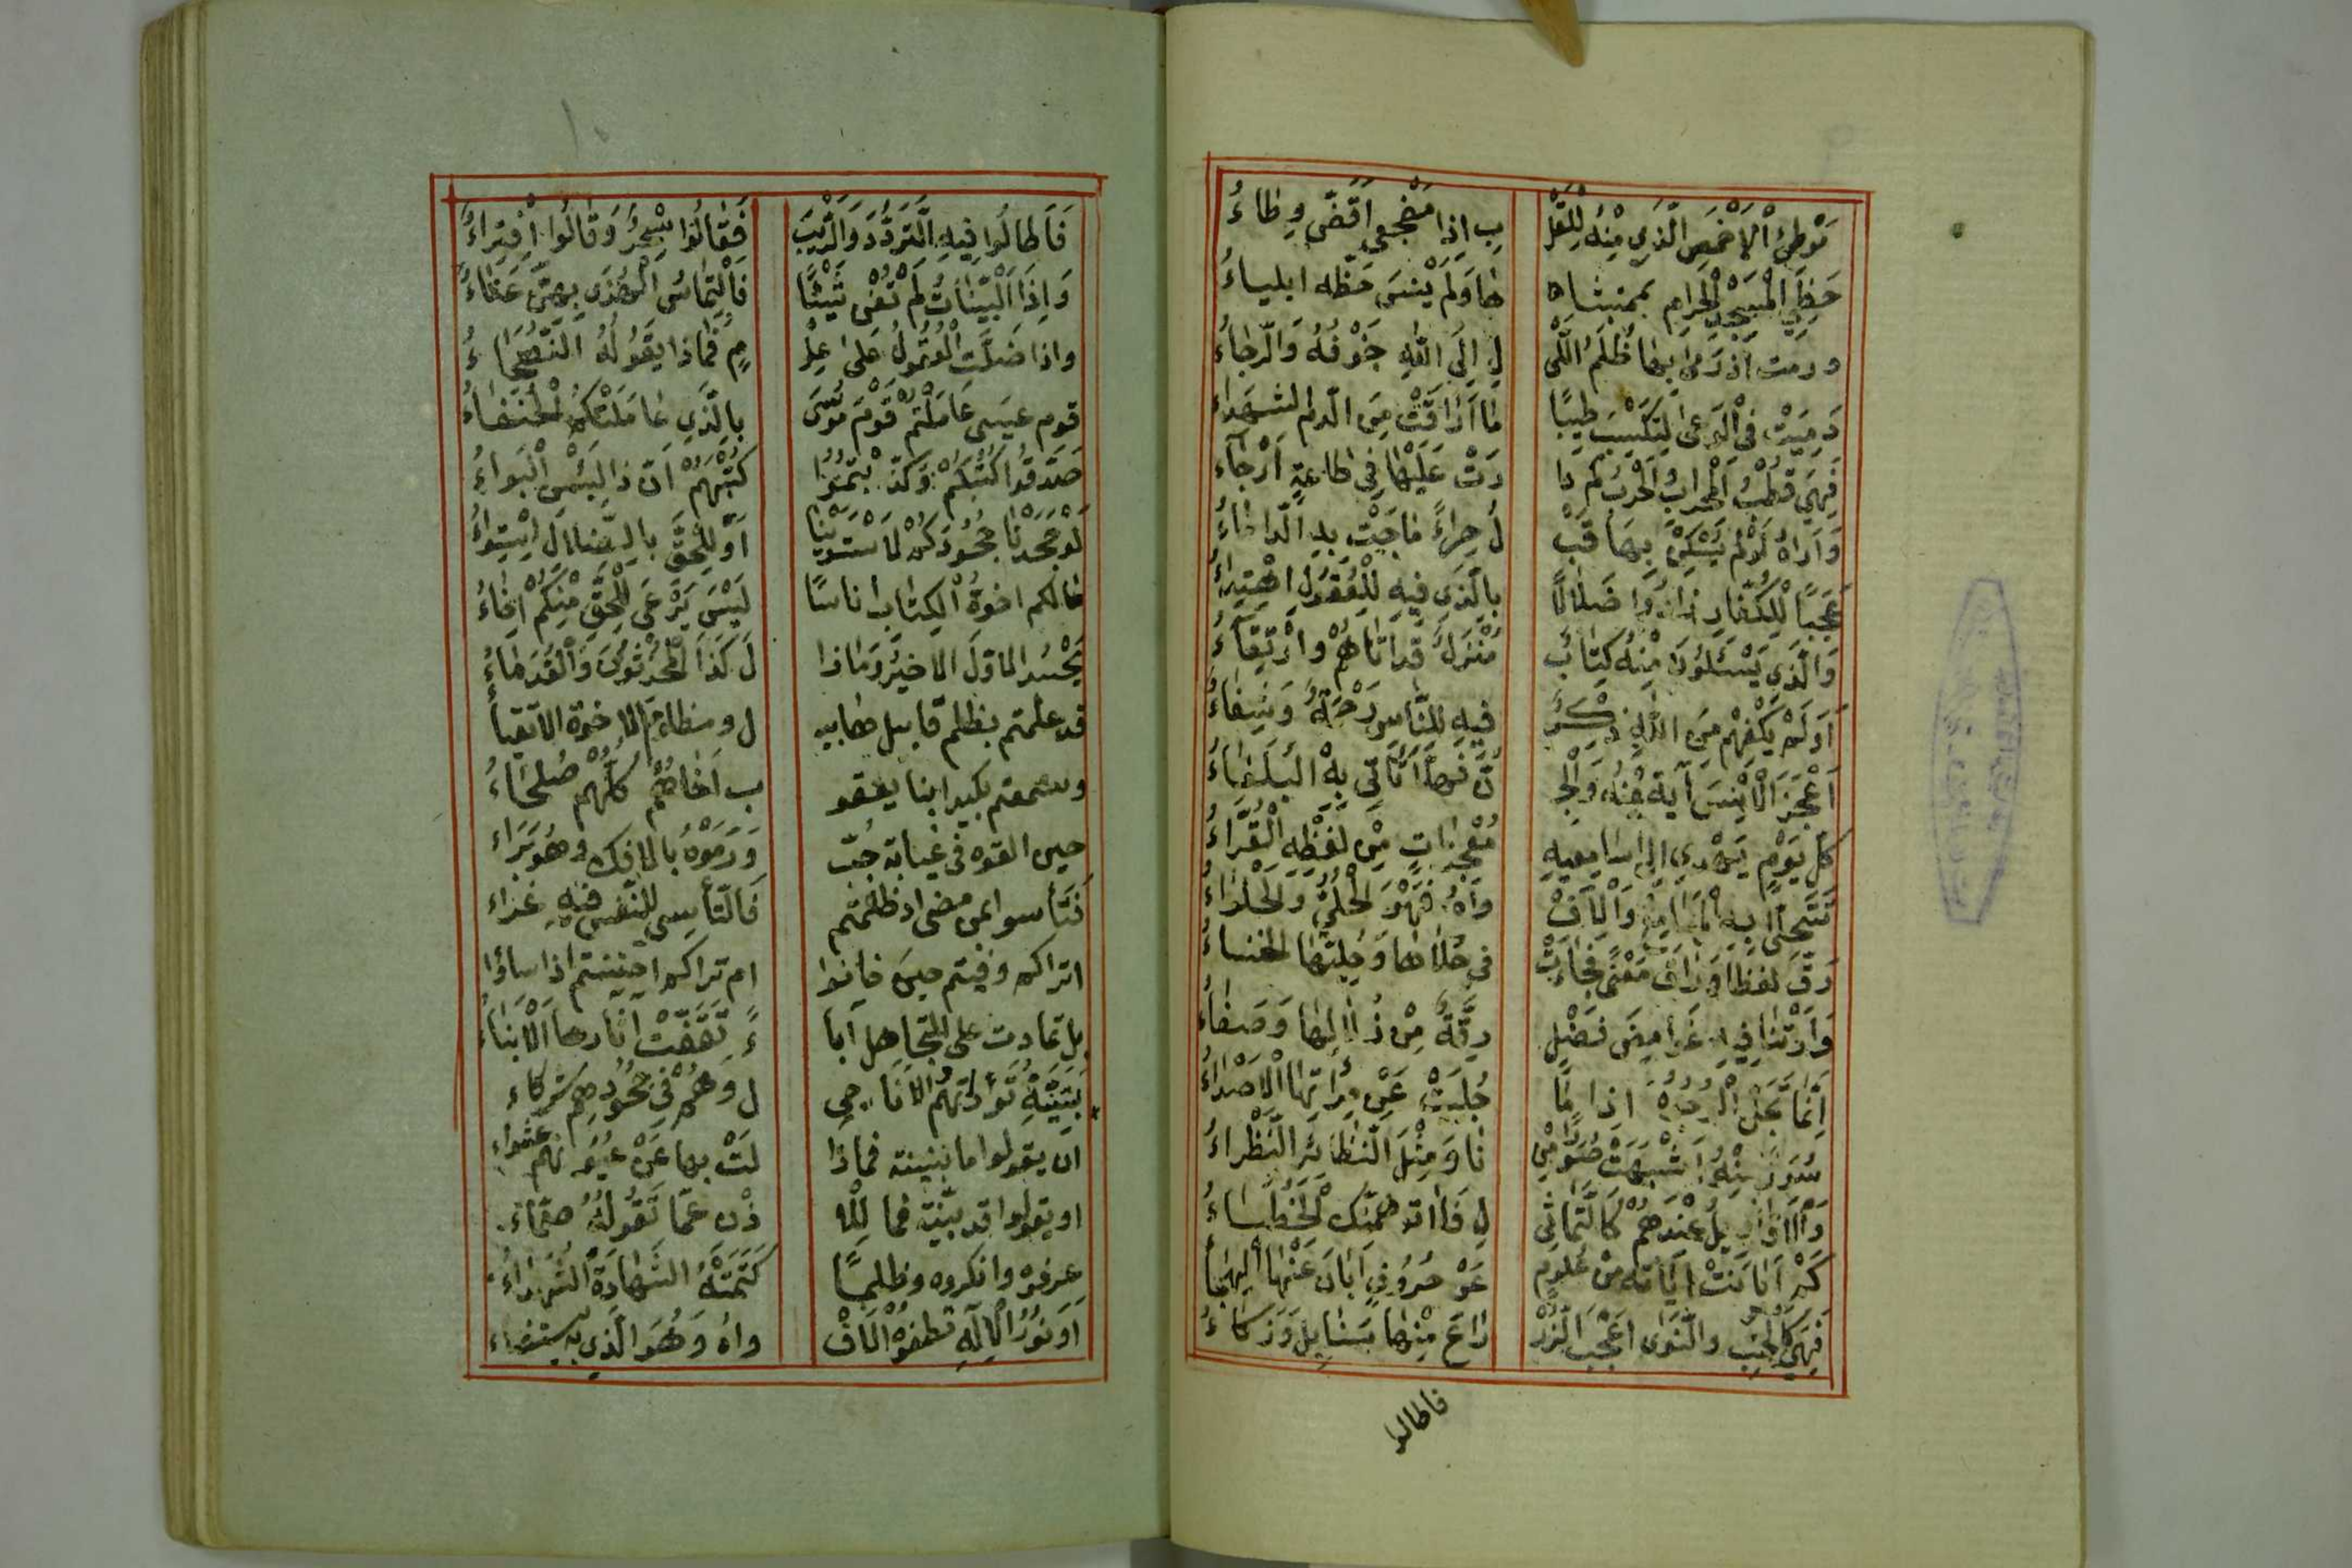 مَوْطِئُ الْاَخْمَصِ الَّذِي مِنْهُ لِلْقَلْ بِ اِذَا مَضْجَعِي اَقَضَّ وِطَاءُ
حَظِيَ الْمَسْجِدُ الْحَرَامِ بممشاه ها وَلَمْ يَنْسَ حَظّه ايلياءُ
ورمت اذ رَمىٰ بها ظُلَمَ اللَّيْ لِ اِلَى اللّٰهِ خَوْفُهُ وَالرَّجَاءُ
دَمِيَتْ فِي الْوَغىٰ لِتَكْسِبَ طِيبًا مَا اَرَاقَتْ مِنَ الدَّمِ الشهداء
فَهِيَ قُطْبُ الْمحْرَابِ وَالْحَرْبِ كم دا رَتْ عَلَيْهَا فِي طَاعَةٍ اَرْحَاء
وَاَرَاهُ لَوْ لَمْ يُسَكِّنْ بِهَا قَبْ لُ حِرَاءً مَاجَتْ بِهِ الدَّاْمَاءُ
عَجَبًا لِلْكُفَّارِ زَادُوا ضَلَالًا بِالَّذِي فِيهِ لِلْعُقُولِ اهْتِدَاءُ
وَالَّذِي يَسْئَلُونَ مِنْهُ كِتَابٌ مُنْزَلٌ قد اتَاهُمْ وَارْتِقَاءُ
اَوَلَمْ يَكْفِهِمْ مِنَ اللّٰهِ ذِكْرٌ فِيهِ لِلنَّاسِ رَحْمَةٌ وَشِفَاءُ
اَعْجَزَ الْاِنْسَ آيَةٌ مِنْهُ وَالْجِ نَّ فَهَلَّا تَاْتِي بِهْ الْبُلَغَاءُ
كلَّ يَوْمٍ يهدي الي سامعيهِ مُعْجِزَاتٍ مِنْ لَفْظِهِ الْقُرَّاءُ
تَتَحَلّٰى بِهِ الْمَسَامِعُ وَالْاَفْ وَاهُ فَهْوَ الْحُلِيُّ وَالْحَلْوَاءُ
رَقَّ لَفْظًا وَرَاقَ مَعْنًى فَجَاءَتْ في حُلَاهَا وَحِلْيَتِهَا الخنساءُ
وَاَرَتْنَا فِيهِ غَوَامِضَ فَضْلٍ رِقَّةٌ مِنْ زُلَالِهَا وَصَفَاءُ
اِنَّمَا تُجْتَلَى الْوُجُوهُ اِذَا مَا جُلِيَتْ عَنْ مِرْاٰتِهَا الْاَصْدَاءُ
سُوَرٌ مِنْهُ اَشْبَهَتْ صُوَرًا مِنْ نَا وَمِثْلُ النَّظَائِرِ النُّظَرَاءُ
وَالْاَقَاوِيلُ عِنْدَهُمْ كَالتَّمَاثِي لِ فَلا توهمنّك الْخُطَبَاءُ
كَمْ اَبَانَتْ آيَاتُهُ مِنْ عُلُومٍ عَنْ حُرُوفٍ اَبَانَ عَنْهَا الْهِجَا
فَهِيَ كَالْحَبِّ وَالنَّوَى اَعْجَبَ الزُّرْ رَاعَ مِنْهَا سَنَابِلٌ وَزَكَاءُ
فاطالوا
فَاَطَالُوا فِيهِ التَّرَدُّدَ وَالرَّيْبَ فَقَالُوا سِحْرٌ وَقَالُوا افْتِرَاءُ
وَاِذَا الْبَيِّنَاتُ لَمْ تُغْنِ شَيْئًا فَالْتِمَاسُ الْهُدَى بِهِنَّ عَنَاءُ
واذا ضَلَّتِ الْعُقُولُ عَلَىٰ عِلْ مٍ فَمَاذَا يَقُولُهُ النُّصَحَاءُ
قوم عِيسَى عَامَلْتُمْ قَوْمَ مُوسَى بِالَّذِي عَامَلَتْكُمُ الْحُنَفَاءُ
صَدَّقُوا كُتْبَكُمْ وَكَذَّبْتُمُوا كُتْبَهُمْ اِنَّ ذَا لَبِئْسَ الْبَوَاءُ
لَوْ جَحَدْنَا جُحُودَكُمْ لَاسْتَوَيْنَا اَوَ لِلْحَقِّ بِالضَّلَالِ اسْتِوَاءُ
مَالكم اخوةُ الْكِتَابِ اناسًا لَيْسَ يُرْعَى لِلْحَقِّ مِنْكُمْ اِخَاءُ
يَحْسُد الاوَّلُ الاخيرَ وَمَا ذا لَ كَذَا الْمُحْدَثُونَ وَالْقُدَمَاءُ
قد علمتم بظلم قابيل هابي ل ومظلوم الاخوة الاتقيا
وسمعتم بكيد ابنا يعقو ب اَخَاهُمْ كُلُّهُمْ صُلَحَاءُ
حين القوه في غيابة جُبّ وَرَمَوْهُ بِالافك وهُو بَرَاء
فَتَأسوا بمن مضى اذ ظلمتم فَالتَّأسي للنّفس فيهِ عَزَاء
اتراكم وفيتم حينَ خانوا ام تراكم احسنتم اذا ساؤا
بل تمادت على التجاهل آبا ءٌ تَقَفَّتْ اثَارها الْاَبْنَاءُ
بَيَّنَتْهُ تَوْرَاتُهُمْ والاَنَاجِي لُ وَهُمْ فِي جُحُودِهِمْ شركاء
ان يقولوا ما بينته فماذا لَتْ بها عَنْ عُيُونِهم عشواء
او يقولوا قد بيّنته فما للا ذْنِ عَمَّا تَقُولُهُ صَمَّاءُ
عرفوه وانكروه وظلمًا كَتَمَتْهُ الشَّهَادَةَ الشُّهَدَاءُ
اَوَ نُورُ الْاِلٰهِ تطفِئُهُ الْاَفْ واهُ وَهُوَ الَّذِي بهِ يستضاء